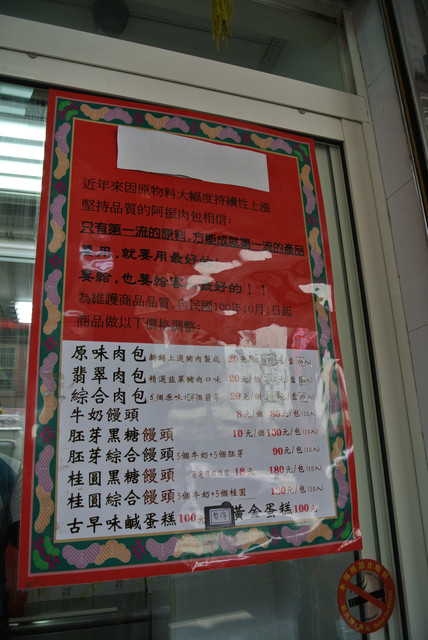 近年來因原物料大幅度持續性上漲
堅持品質的阿振肉包相信:
只有第一流的原料,方能成就第一流的產品
要用,就要用最好的!
要給,也要給客 最好的!!
為維護商品品質, 民國100年10月1日起
商品做以下價格調整:
原味肉包 新鮮上選豬肉製成 20元/個
翡翠肉包 精選韭菜豬肉口味 20元/個
綜合肉包 5個原味+5個翡翠 20元/個
牛奶饅頭 8元/個 80元/包(10入)
胚芽黑糖饅頭 10元/個 100元/包(10入)
胚芽綜合饅頭 5個牛奶+5個胚芽 90元/包(10入)
桂圓黑糖饅頭 18元 180元/包(10入)
桂圓綜合饅頭 5個牛奶+5個桂圓 130元/包(10入)
古早味鹹蛋糕100元 暫停 黃金蛋糕100元